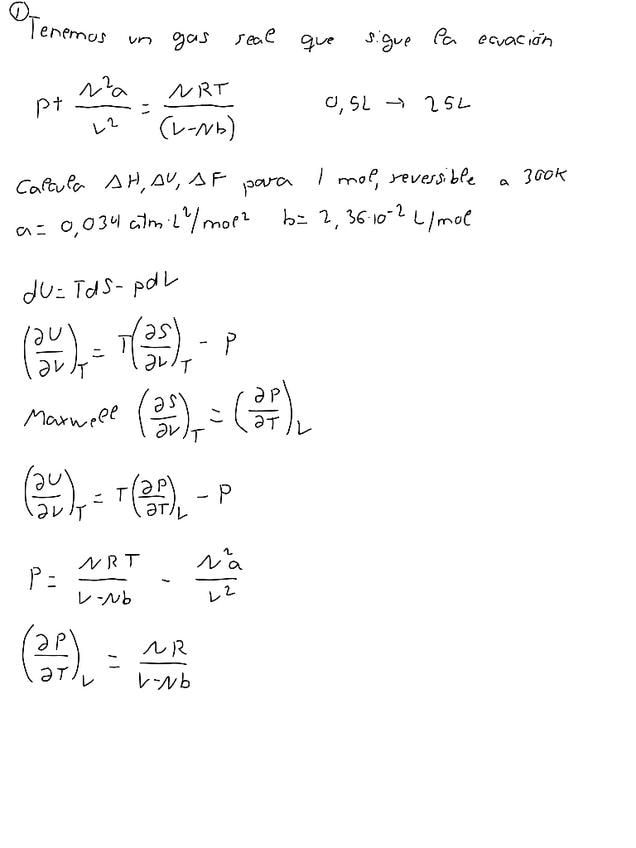 ① Tenemos un gas real que sigue la ecuación
P + N²a/V² = NRT/(V-Nb) 0,5L → 25L
Calcula ΔH, ΔU, ΔF para 1 mol, reversible a 300K
a = 0,034 atm·L²/mol² b = 2,36·10⁻² L/mol
dU = TdS - pdV
(∂U/∂V)_T = T(∂S/∂V)_T - P
Maxwell (∂S/∂V)_T = (∂P/∂T)_V
(∂U/∂V)_T = T(∂P/∂T)_V - P
P = NRT/V-Nb - N²a/V²
(∂P/∂T)_V = NR/V-Nb